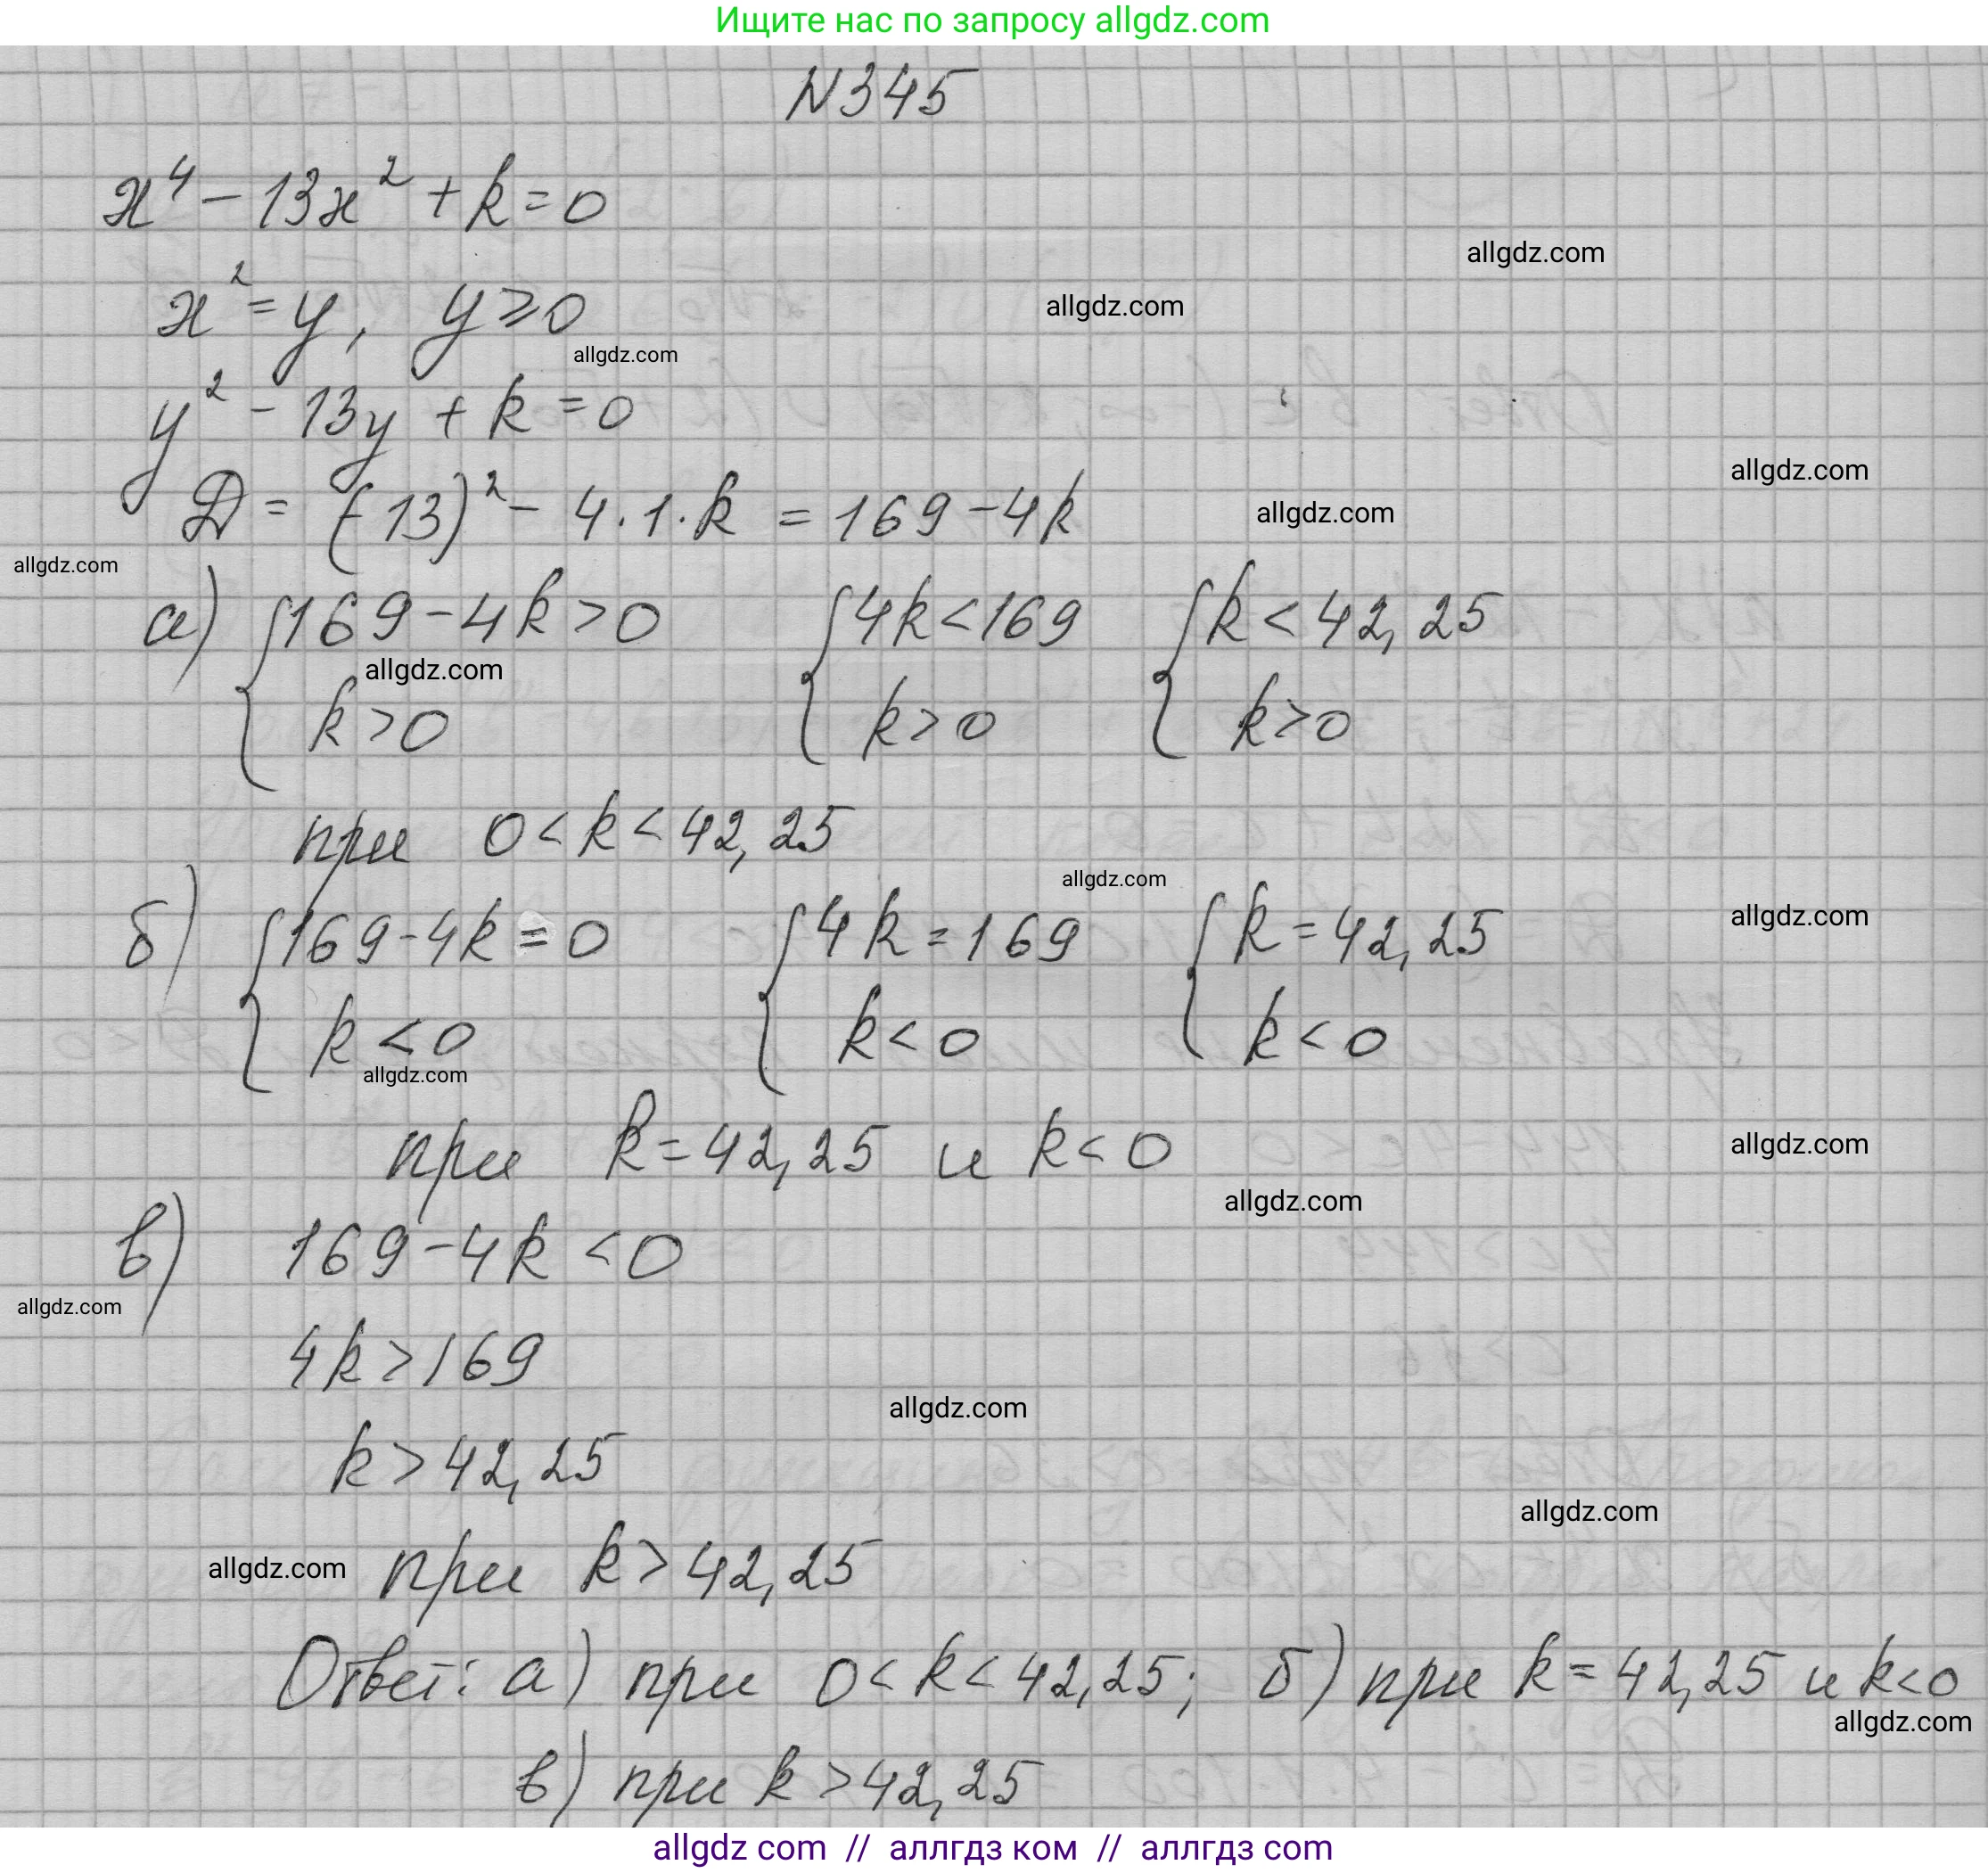 Ищите нас по запросу allgdz.com
N345
x⁴ - 13x² + k = 0
allgdz.com
x² = y, y ≥ 0
allgdz.com
allgdz.com
y² - 13y + k = 0
allgdz.com
D = (-13)² - 4·1·k = 169 - 4k
allgdz.com
allgdz.com
а) { 169 - 4k > 0 { 4k < 169 { k < 42,25
allgdz.com
k > 0 k > 0 k > 0
при 0 < k < 42,25
allgdz.com
б) { 169 - 4k = 0 { 4k = 169 { k = 42,25
allgdz.com
k < 0 k < 0 k < 0
allgdz.com
при k = 42,25 и k < 0
allgdz.com
allgdz.com
в) 169 - 4k < 0
allgdz.com
4k > 169
allgdz.com
k > 42,25
allgdz.com
allgdz.com
при k > 42,25
Ответ: а) при 0 < k < 42,25; б) при k = 42,25 и k < 0
allgdz.com
в) при k > 42,25
allgdz com // аллгдз ком // аллгдз com